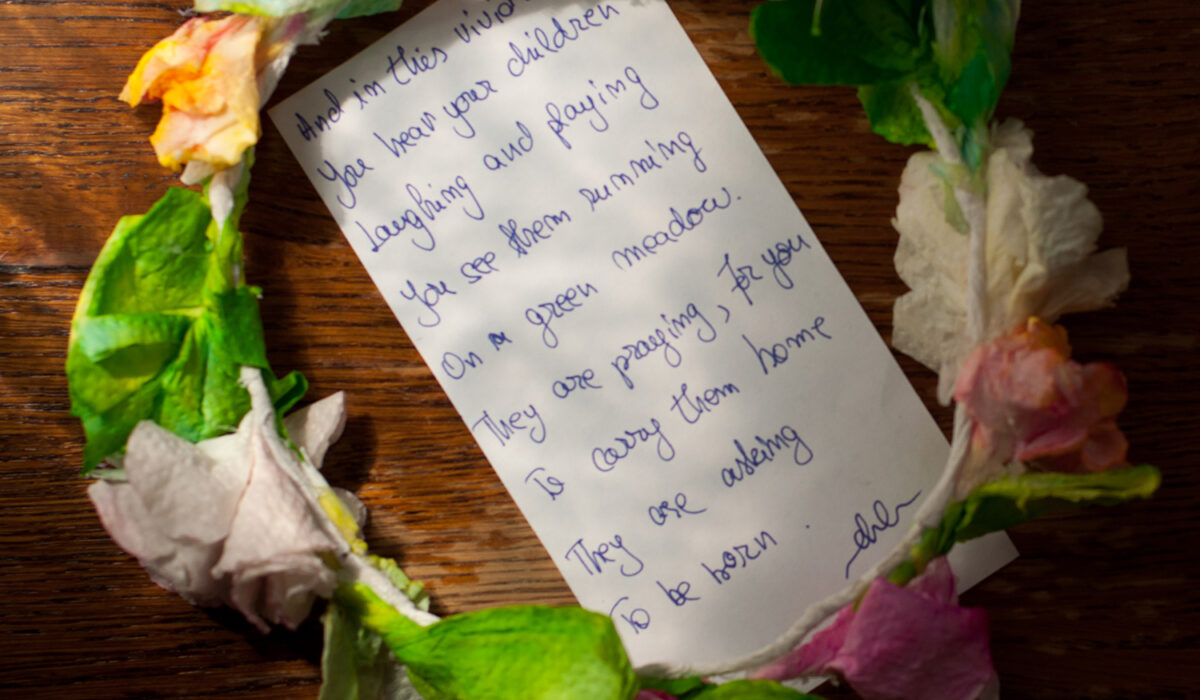 And in thies
You hear your children
Laughing and playing
You see them running
On a green meadow.
They are praying, for you
To carry them home
They are asking
To be born.